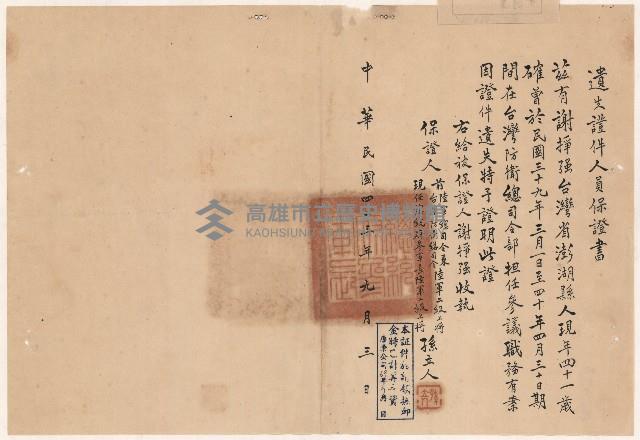 遺失證件人員保證書
茲有謝掙強台灣省澎湖縣人現年四十一歲
確曾於民國三十九年三月一日至四十年四月三十日期
間在台灣防衛總司令部担任參議職務有案
因證件遺失特予證明此證
右給被保證人謝掙強收執
保證人
前陸軍總司令兼台灣防衛總司令陸軍二級上將
現任總統府參軍長陸軍二級上將
孫立人
中華民國四十三年九月三日
高雄市立歷史博物館
KAOHSIUNG